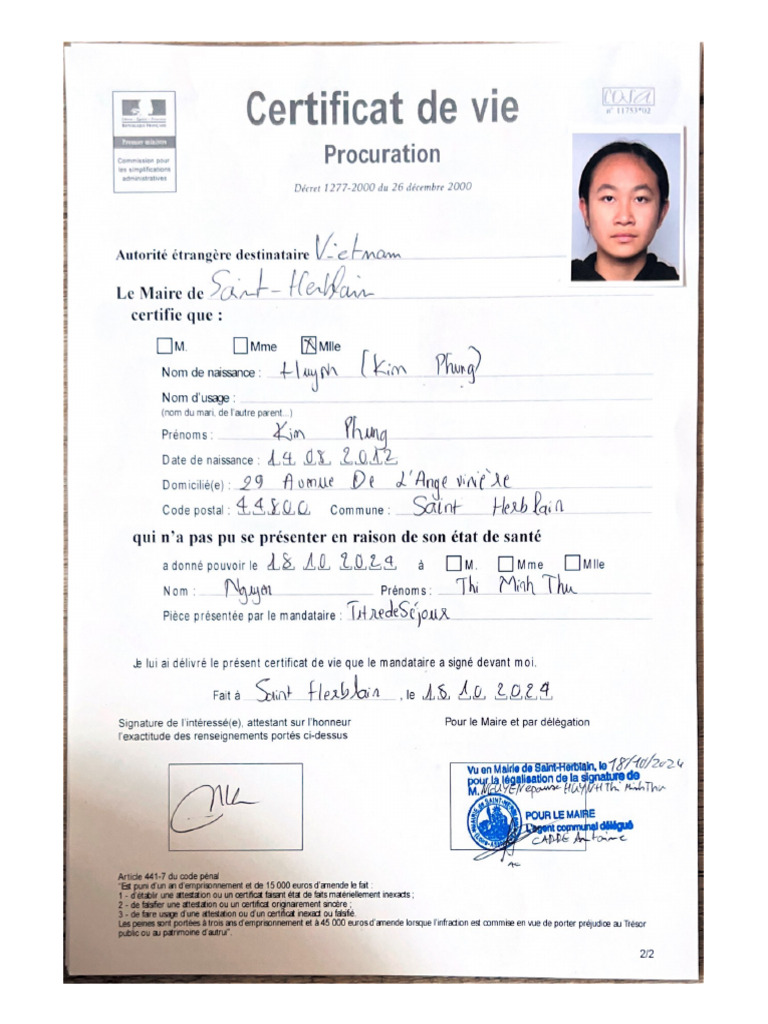 Certificat de vie
Procuration
Décret 1277-2000 du 26 décembre 2000
RÉPUBLIQUE FRANÇAISE
Commission pour
les simplifications
administratives
cerfa
n° 11753*02
Autorité étrangère destinataire Vietnam
Le Maire de Saint-Herblain
certifie que :
M. Mme Mlle
Nom de naissance : Huynh (Kim Phung)
Nom d'usage :
(nom du mari, de l'autre parent...)
Prénoms : Kim Phung
Date de naissance : 14 08 2012
Domicilié(e) : 29 Avenue De L'Angevinière
Code postal : 44800 Commune : Saint Herblain
qui n'a pas pu se présenter en raison de son état de santé
a donné pouvoir le 18 10 2024 à M. Mme Mlle
Nom : Nguyen Prénoms : Thi Minh Thu
Pièce présentée par le mandataire : Titre de Séjour
Je lui ai délivré le présent certificat de vie que le mandataire a signé devant moi.
Fait à Saint Herblain , le 18 10 2024
Signature de l'intéressé(e), attestant sur l'honneur
l'exactitude des renseignements portés ci-dessus
Pour le Maire et par délégation
Vu en Mairie de Saint-Herblain, le 18/10/2024
pour la légalisation de la signature de
M. NGUYEN épouse HUYNH Thi Minh Thu
POUR LE MAIRE
L'agent communal délégué
CADRE Antoine
Article 441-7 du code pénal
"Est puni d'un an d'emprisonnement et de 15 000 euros d'amende le fait :
1 - d'établir une attestation ou un certificat faisant état de faits matériellement inexacts ;
2 - de falsifier une attestation ou un certificat originairement sincère ;
3 - de faire usage d'une attestation ou d'un certificat inexact ou falsifié.
Les peines sont portées à trois ans d'emprisonnement et à 45 000 euros d'amende lorsque l'infraction est commise en vue de porter préjudice au Trésor
public ou au patrimoine d'autrui".
2/2